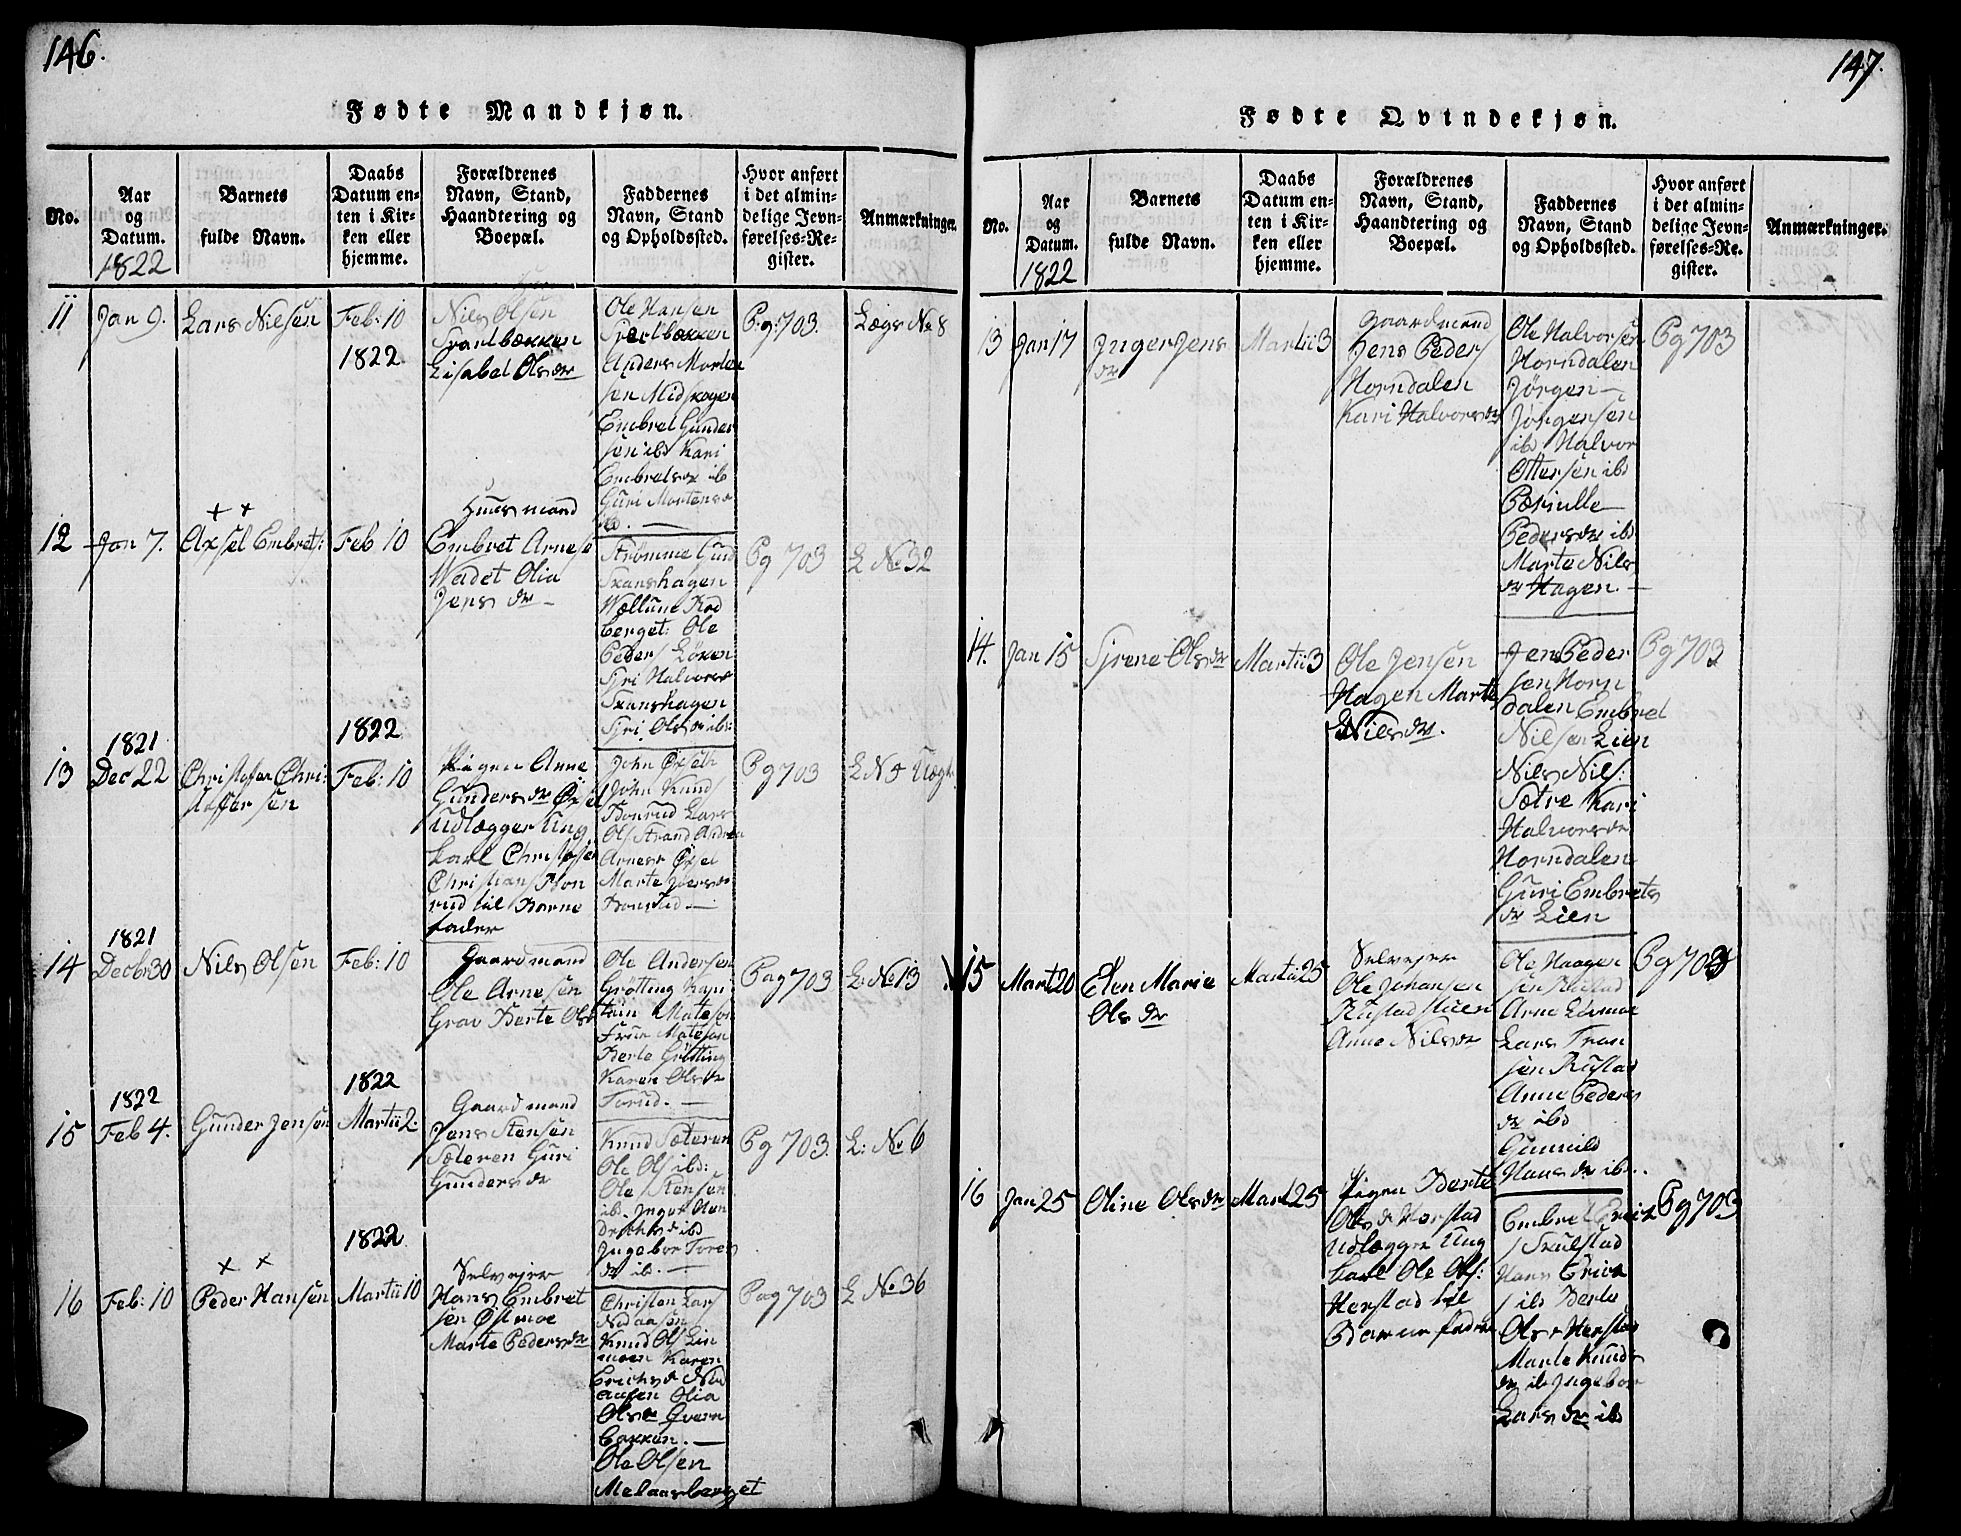 146.
Fødte Mandkjøn.
No.
Aar
og
Datum.
1822
Barnets
fulde Navn.
Daabs
Datum en-
ten i Kir-
ken eller
hjemme.
Forældrenes
Navn, Stand,
Haandtering og
Boepæl.
Faddernes
Navn, Stand
og Opholdssted.
Hvor anført
i det almin-
delige Jevn-
førelses-Re-
gister.
Anmærkninger.
11
Jan 9.
Lars Nilsen
Feb: 10
1822
Nils Olsen
Svartbækken
Lisabel Olsdr
Ole Hansen
Svartbækken
Anders Morten
sen Midskogen
Embret Gunder
sen ibd Kari
Embretsdr ib
Guri Mortens
Pg: 703.
Lægs No 8
12
Jan 7.
Axsel Embrets:
Feb 10
Huusmand
Embret Arnese
Wadet Olia
Jens dr
Strømme Gund
Skanshagen
Berget: Ole
Peders Løken
Siri Halvors
Skanshagen
Siri Olsdr ib:
Pg 703
L No 32
13
1821
Dec 22
Christofer Chri:
stoffersen
1822
Feb: 10
Pigen Anne
Gundersdr Øxset
Udlægger Ung
karl Christofer
Christians
rud til Barne
fader
John Øxseth
John Knuds
Lars
Ols Strand
Arnesr Øxset
Marte
Pg 703
14
1821
Decbr 30
Nils Olsen
Feb: 10
Gaardmand
Ole Arnesen
Grav Berte Ols
Ole Andersen
Grøtting Kap
tain Mateson
Frue Mateson
Berte Grøtting
Karen Olsdr
Torud.
Pag 703
L: No 13
15
1822
Feb 4.
Gunder Jensen
1822
Martii 2.
Gaardmand
Jens Stensen
Sæteren Guri
Gundersdr
Knud Sæteren
Ole Ols ibd:
Ole Stensen
ib. Inger Hen
driksd ibd
Ingebor Tores
dr ib.
Pg 703.
L: No 6
16
Feb: 10
Peder Hansen
1822
Martii 10
Selvejer
Hans Embret
sen Østmoe
Marte Pedersdr
Christen Lars
Knud Ols Lin
moen Karen
Erichsd Nød
aasen Olia
Olsdr Qvern
bakken.
Ole Olsen
Melaasberget
Pag 703
L No 36
147.
Fødte Qvindekjøn.
No.
Aar
og
Datum.
1822
Barnets
fulde Navn.
Daabs
Datum en-
ten i Kir-
ken eller
hjemme.
Forældrenes
Navn, Stand,
Haandtering og
Boepæl.
Faddernes
Navn, Stand
og Opholdssted.
Hvor anført
i det almin-
delige Jevn-
førelses-Re-
gister.
Anmærkninger.
13
Jan 17
Inger Jens
dr
Martii 3
Gaardmand
Jens Peders
Horndalen
Kari Halvorsdr
Ole Halvorsen
Horndalen
Jørgen
Jørgensen
ibd Halvor
Ottersen ibd
Pernille
Pedersdr ibd
Marte Nils
dr Hagen.
Pg 703
14.
Jan 15
Sirene Olsdr
Martii 3
Ole Jensen
Hagen Marte
Nilsdr.
Jens Peder
sen Horn
dalen Embret
Nilsen Lien
Nils Nils:
Sætre Kari
Halvorsdr
Horndalen
Guri Embrets
dr Lien
Pg 703
15
Mart 20
Elen Marie
Olsdr
Martii 25
Selvejer
Ole Johansen
Rustadstuen
Anne Nilsdr
Ole Haagen
sen Rustad
Arne
Lars Tron
sen Rustad
Anne Peders
dr ibd
Gunnild
Hansdr ib.
Pg 703
16
Jan 25
Oline Olsdr
Mart 25
Pigen Berte
Olsd Herstad
Udlægger Ung
karl Ole Ols:
Herstad til
Barnefader
Embret Erich
s Skulstad
Hans Erich
s ibd Berte
Olsdr Herstad
Marte Knuds
dr ib Ingebor
Larsdr ibd
Pg 703